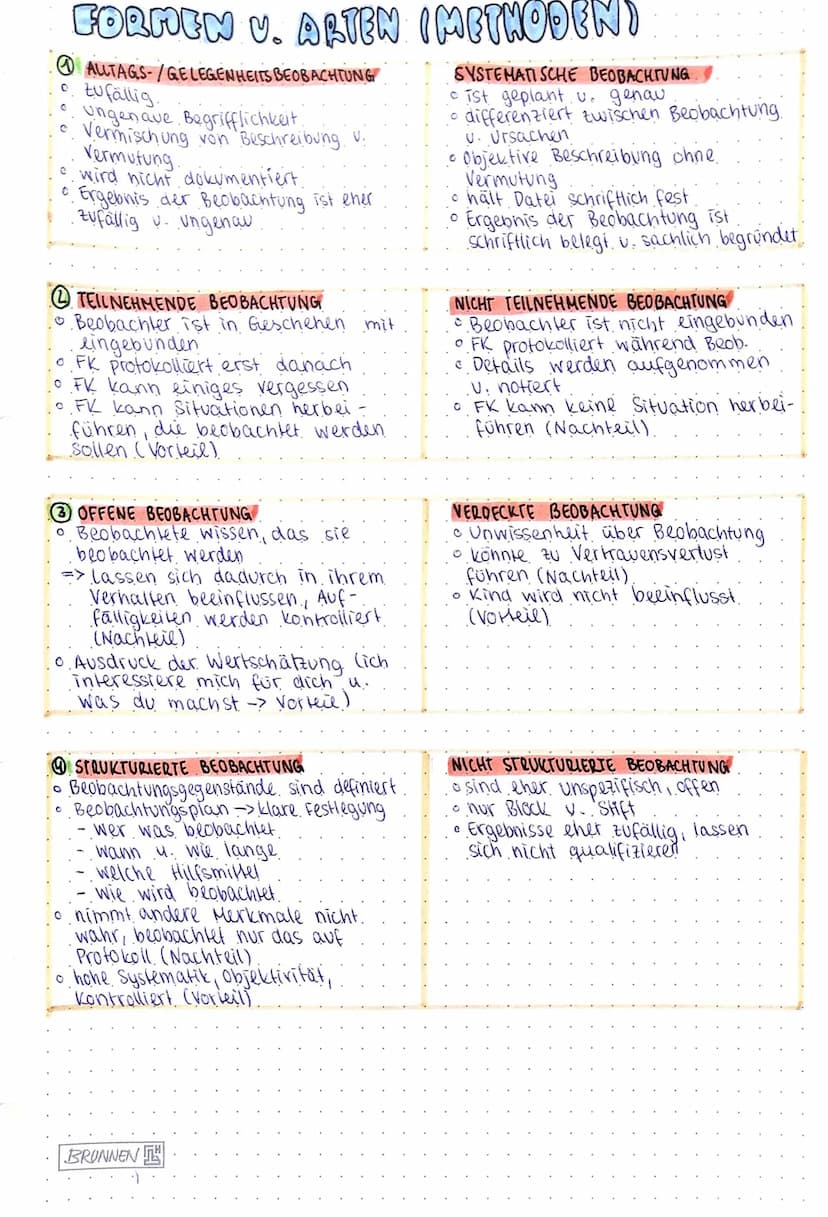 FORMEN U. ARTEN (METHODEN)
① ALLTAGS-/GELEGENHEITSBEOBACHTUNG
° zufällig
° ungenaue Begrifflichkeit
° Vermischung von Beschreibung u.
Vermutung
° wird nicht dokumentiert
° Ergebnis der Beobachtung ist eher
zufällig u. ungenau
SYSTEMATISCHE BEOBACHTUNG
° ist geplant u. genau
° differenziert zwischen Beobachtung
u. Ursachen
° Objektive Beschreibung ohne
Vermutung
° hält Datei schriftlich fest
° Ergebnis der Beobachtung ist
schriftlich belegt u. sachlich begründet
② TEILNEHMENDE BEOBACHTUNG
° Beobachter ist in Geschehen mit
eingebunden
° FK protokolliert erst danach
° FK kann einiges vergessen
° FK kann Situationen herbei-
führen, die beobachtet werden
sollen (Vorteil)
NICHT TEILNEHMENDE BEOBACHTUNG
° Beobachter ist nicht eingebunden
° FK protokolliert während Beob.
° Details werden aufgenommen
u. notiert
° FK kann keine Situation herbei-
führen (Nachteil)
③ OFFENE BEOBACHTUNG
° Beobachtete wissen, das sie
beobachtet werden
=> lassen sich dadurch in ihrem
Verhalten beeinflussen, Auf-
fälligkeiten werden kontrolliert
(Nachteil)
° Ausdruck der Wertschätzung (ich
interessiere mich für dich u.
was du machst -> Vorteil)
VERDECKTE BEOBACHTUNG
° Unwissenheit über Beobachtung
° könnte zu Vertrauensverlust
führen (Nachteil)
° Kind wird nicht beeinflusst
(Vorteil)
④ STRUKTURIERTE BEOBACHTUNG
° Beobachtungsgegenstände sind definiert
° Beobachtungsplan -> klare Festlegung
- wer was beobachtet
- wann u. wie lange
- welche Hilfsmittel
- wie wird beobachtet
° nimmt andere Merkmale nicht
wahr, beobachtet nur das auf
Protokoll (Nachteil)
° hohe Systematik, Objektivität,
kontrolliert (Vorteil)
NICHT STRUKTURIERTE BEOBACHTUNG
° sind eher unspezifisch, offen
° nur Block u. Stift
° Ergebnisse eher zufällig, lassen
sich nicht qualifizieren
BRUNNEN